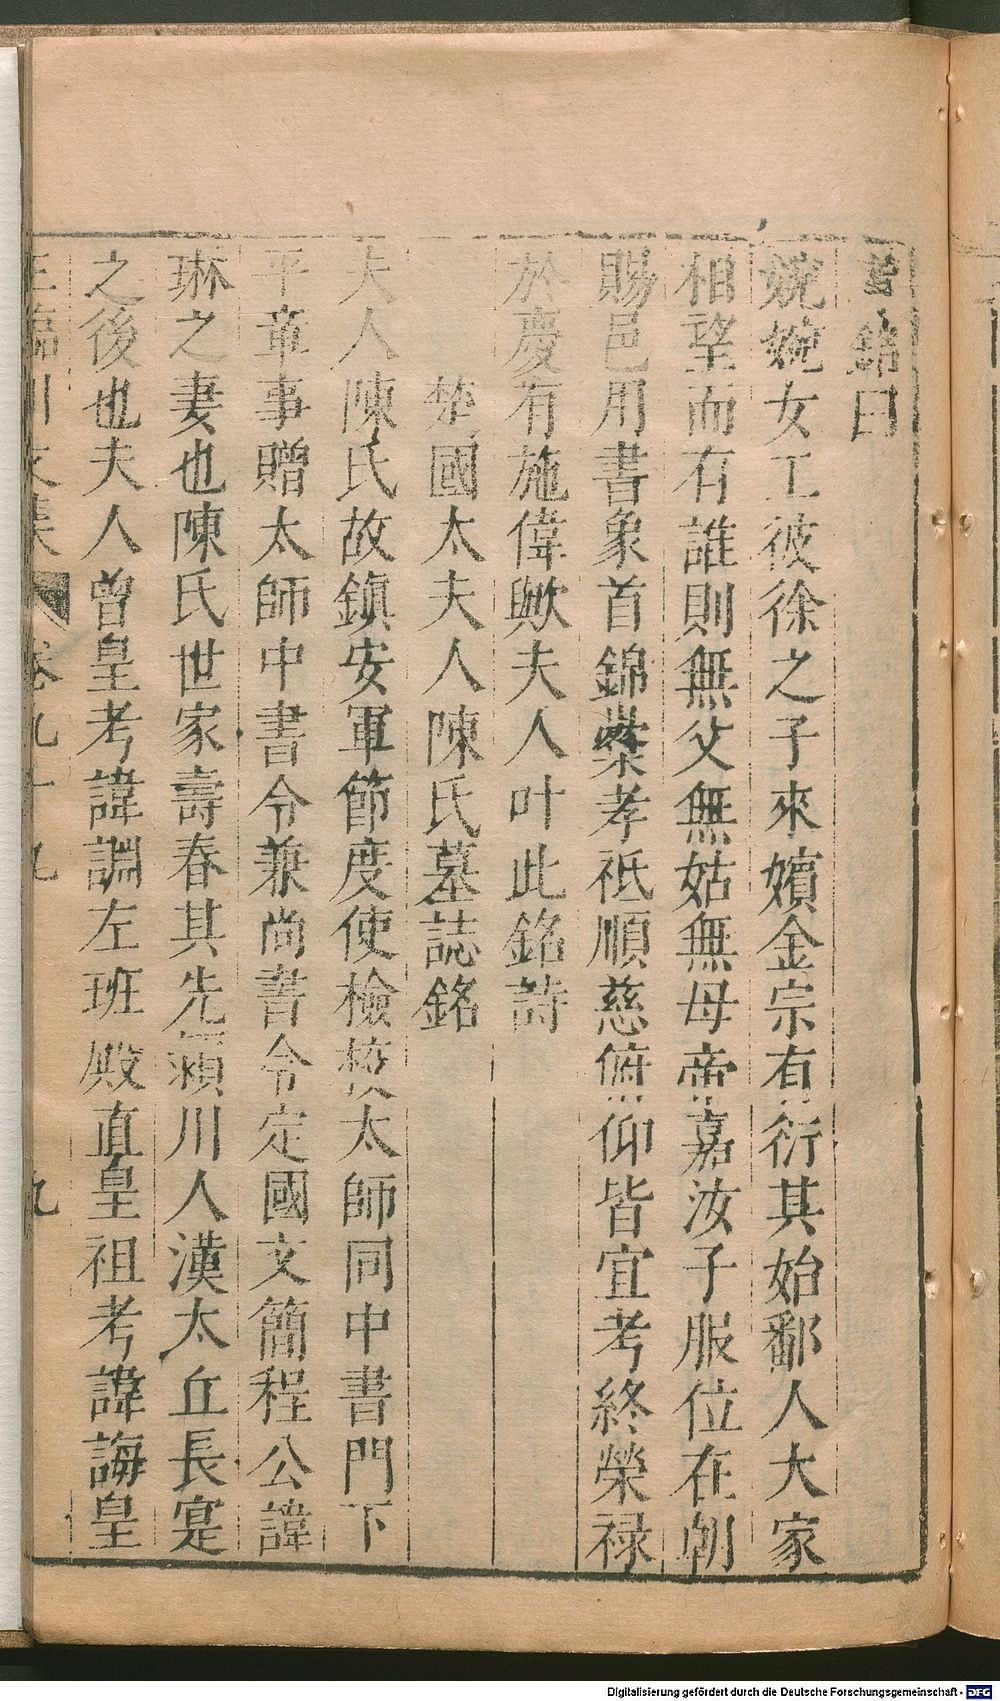 曾銘曰
婉婉女工彼徐之子來嬪金宗有衍其始鄱人大家
相望而右誰則無父無姑無母帝嘉汝子服位在朝
賜邑用書象首錦褧孝祗順慈俯仰皆宜考終榮禄
於慶有施偉歟夫人叶此銘詩
楚國太夫人陳氏墓誌銘
夫人陳氏故鎮安軍節度使檢校太師同中書門下
平章事贈太師中書令兼尚書令定國文簡程公諱
琳之妻也陳氏世家壽春其先潁川人漢太丘長寔
之後也夫人曾皇考諱調左班殿直皇祖考諱誨皇
王臨川文集 卷九十九 九
Digitalisierung gefördert durch die Deutsche Forschungsgemeinschaft - DFG